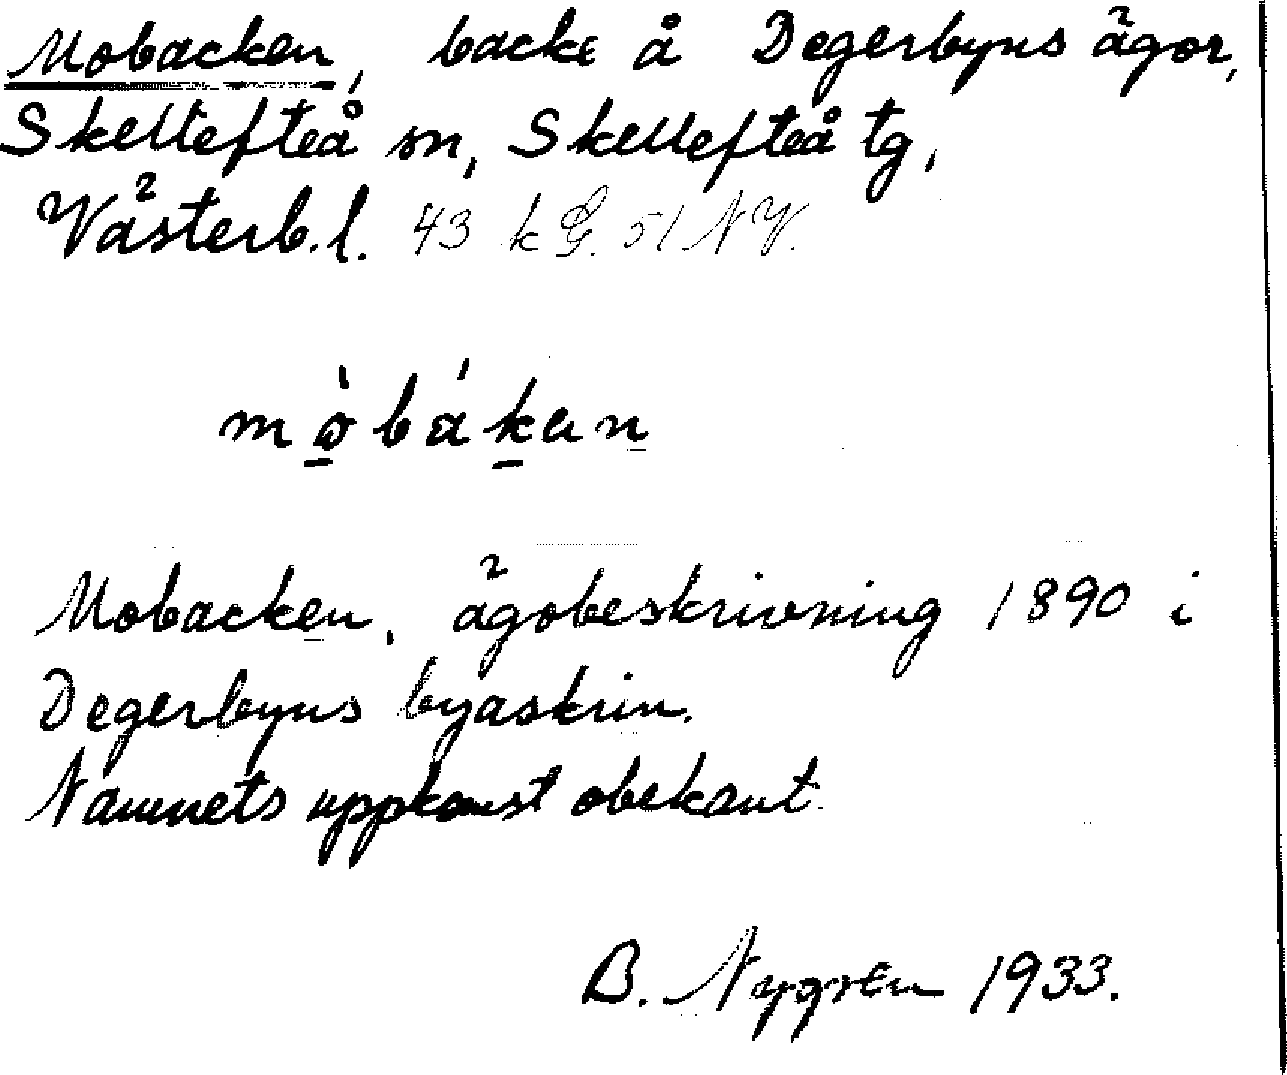 Mobacken, backe å Degerbyns ägor,
Skellefteå sn, Skellefteå tg,
Västerb.l. 43 k G. 51 NV.
mòbákan
Mobacken, ägobeskrivning 1890 i
Degerbyns byaskrin.
Namnets uppkomst obekant.
B. Nygren 1933.